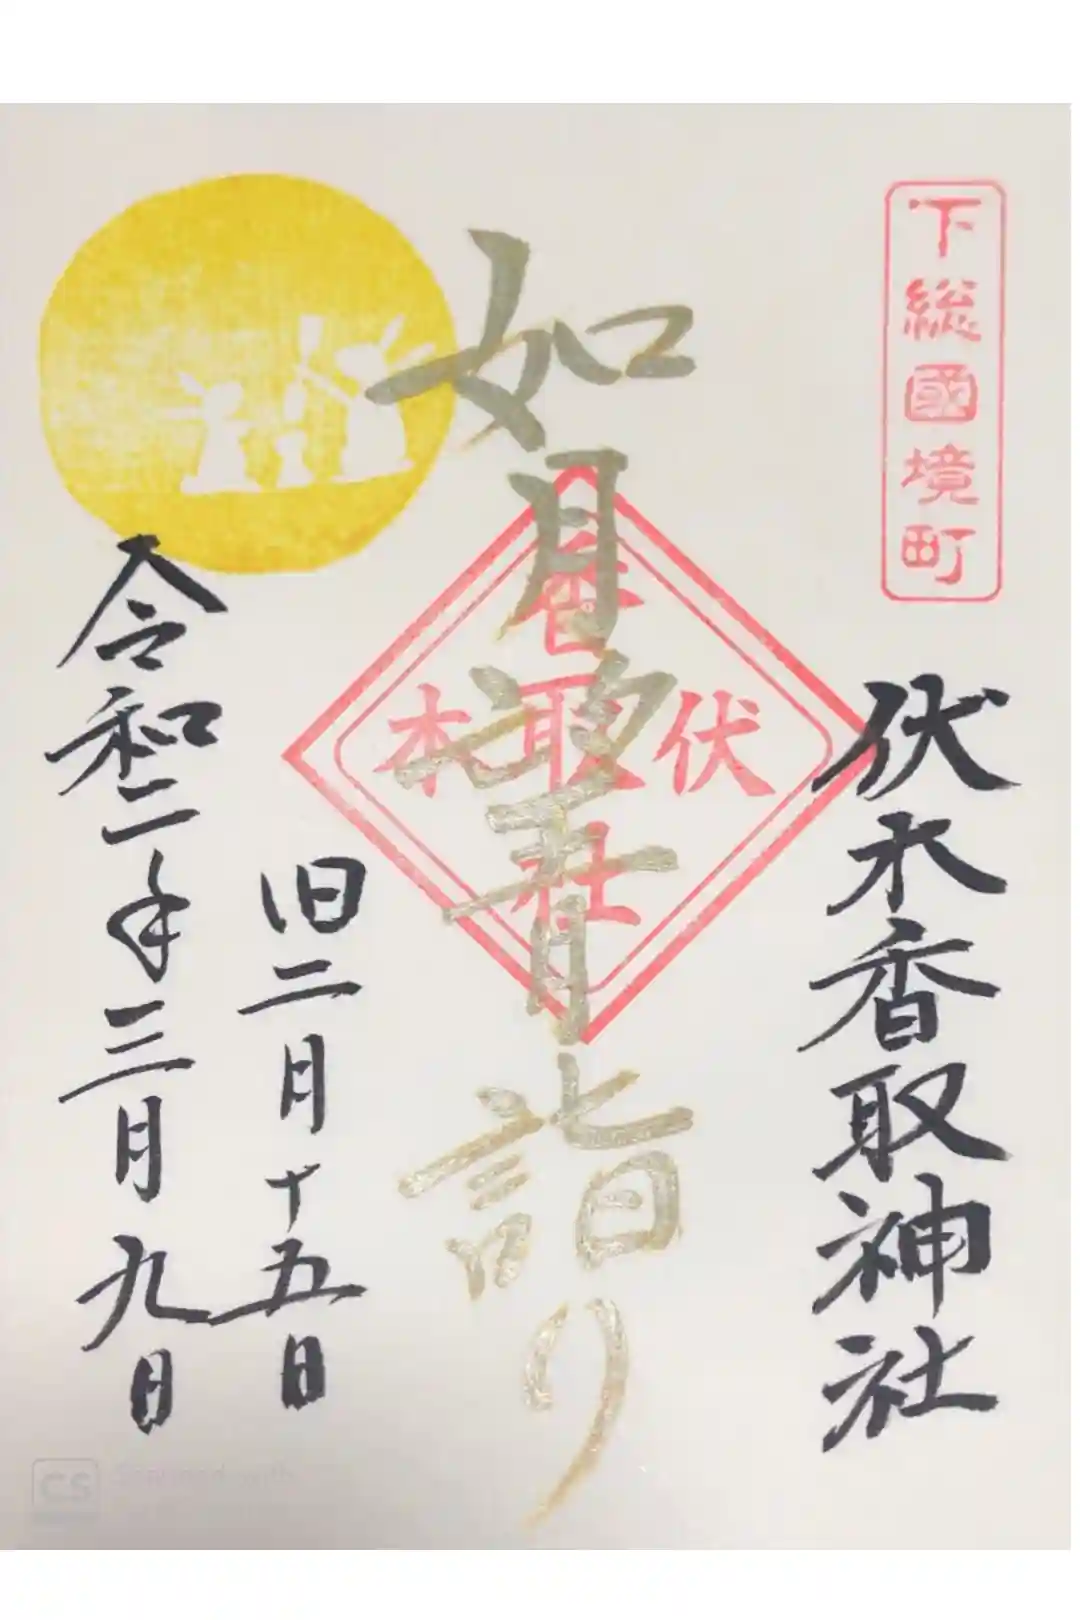 下総國境町
伏木香取神社
如月望月詣り
香取
伏木
社
旧二月十五日
令和二年三月九日
CS